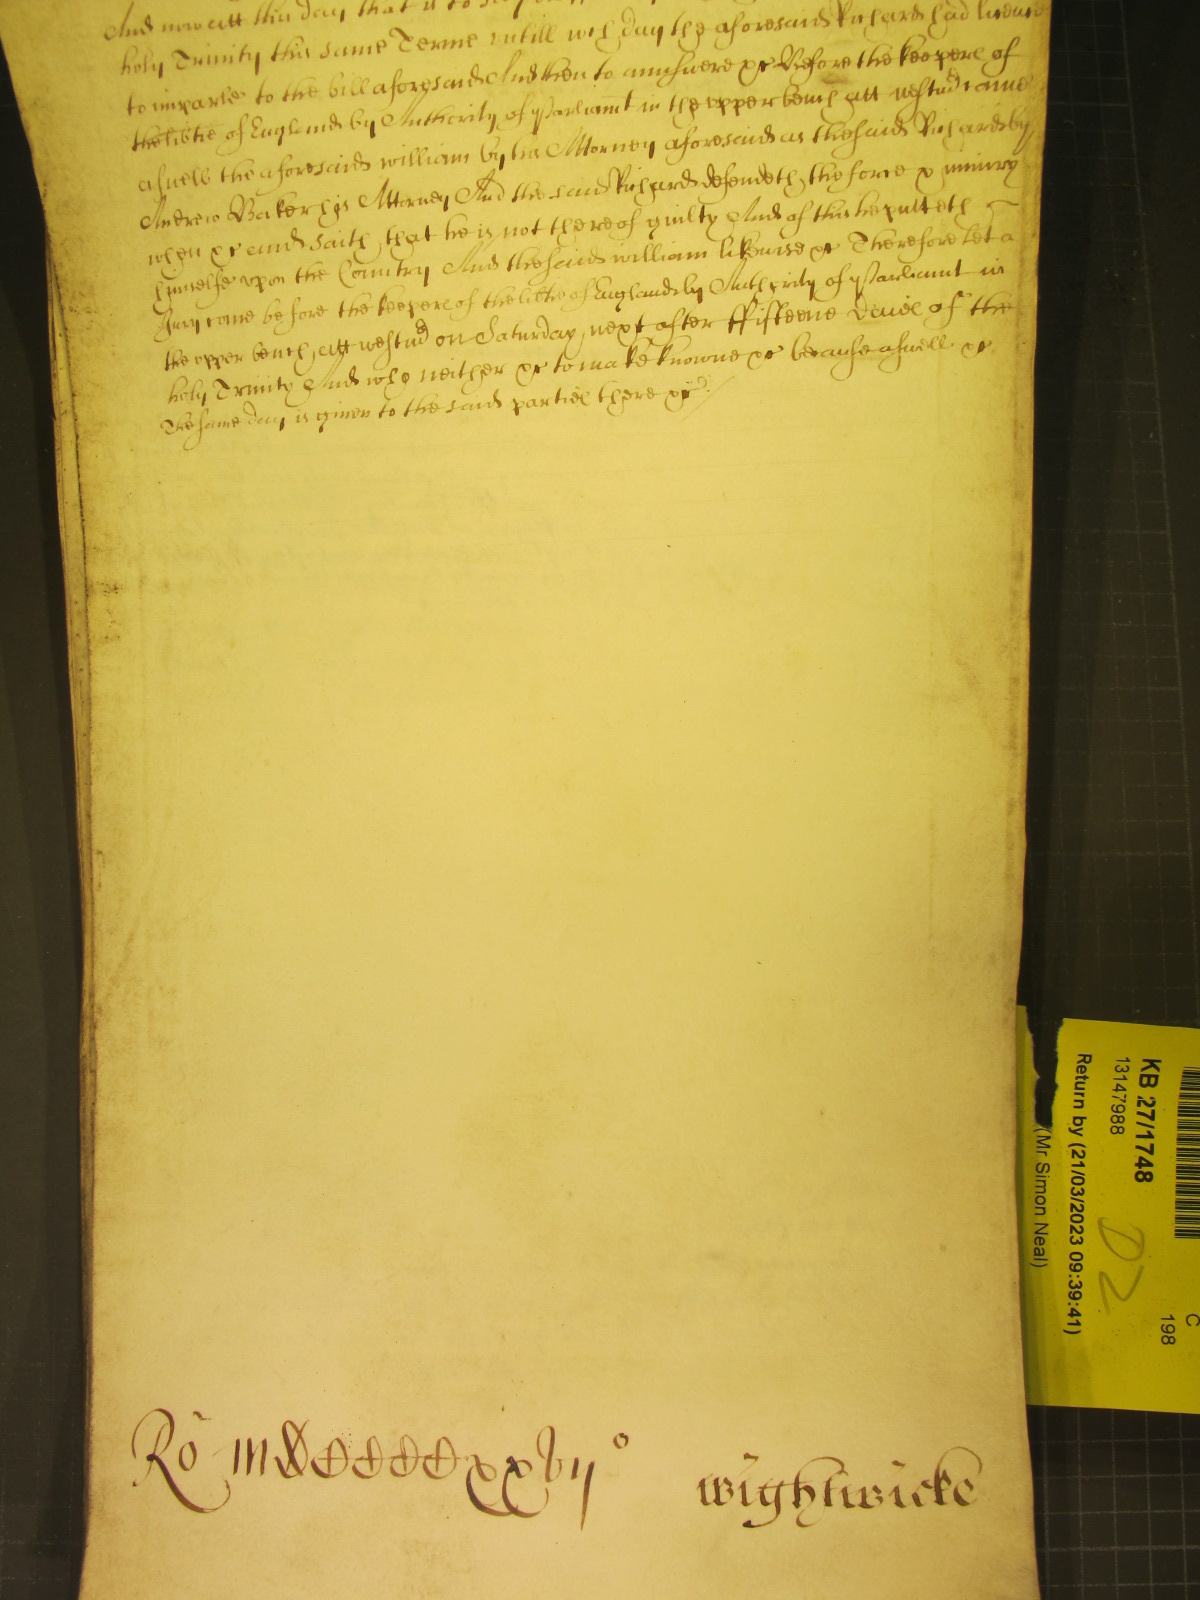 And now att this day that is to say
holy Trinity this same Terme untill wch day the aforesaid Richard had licence
to imparle to the bill aforesaid And then to aunswere &c Before the keepers of
the libtie of England by Authority of Parliamt in the upper bench att Westmd came
aswell the aforesaid william by his Attorney aforesaid as the said Richard by
Andrew Baker his Attorney And the said Richard defendeth the force & iniury
when &c and saith that he is not thereof guilty And of this he putteth
himselfe upon the Country And the said william likewise &c Therefore let a
Jury come before the keepers of the libtie of England by Authority of Parliamt in
the upper bench att Westmd on Saturday next after ffifteene daies of the
holy Trinity And who neither &c to make knowne &c because aswell &c
The same day is given to the said parties there &c
Ro MDCCCCxxvij o
Wightwicke
KB 27/1748
13147988
Return by (21/03/2023 09:39:41)
(Mr Simon Neal)
D2
C
198